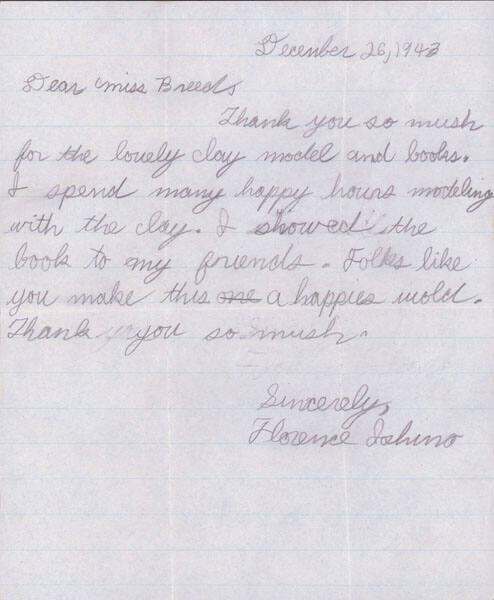 December 26, 1943
Dear Miss Breed,
Thank you so mush
for the lovely clay model and books.
I spend many happy hours modeling
with the clay. I showed the
book to my friends. Folks like
you make this one a happies wold.
Thank you so mush.
Sincerely,
Florence Ishino